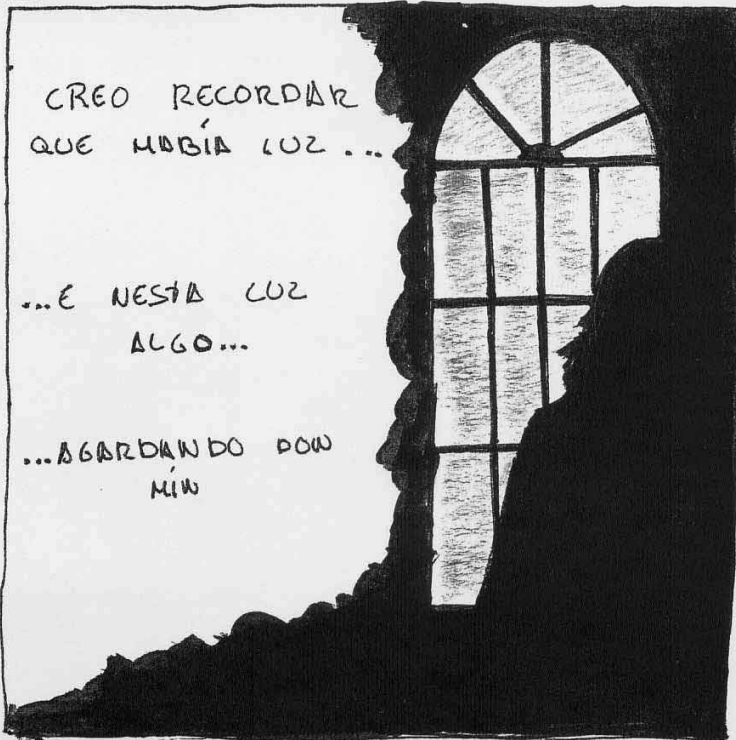 CREO RECORDAR
QUE HABÍA LUZ ...
...E NESTA LUZ
ALGO...
...AGARDANDO POR
MIN